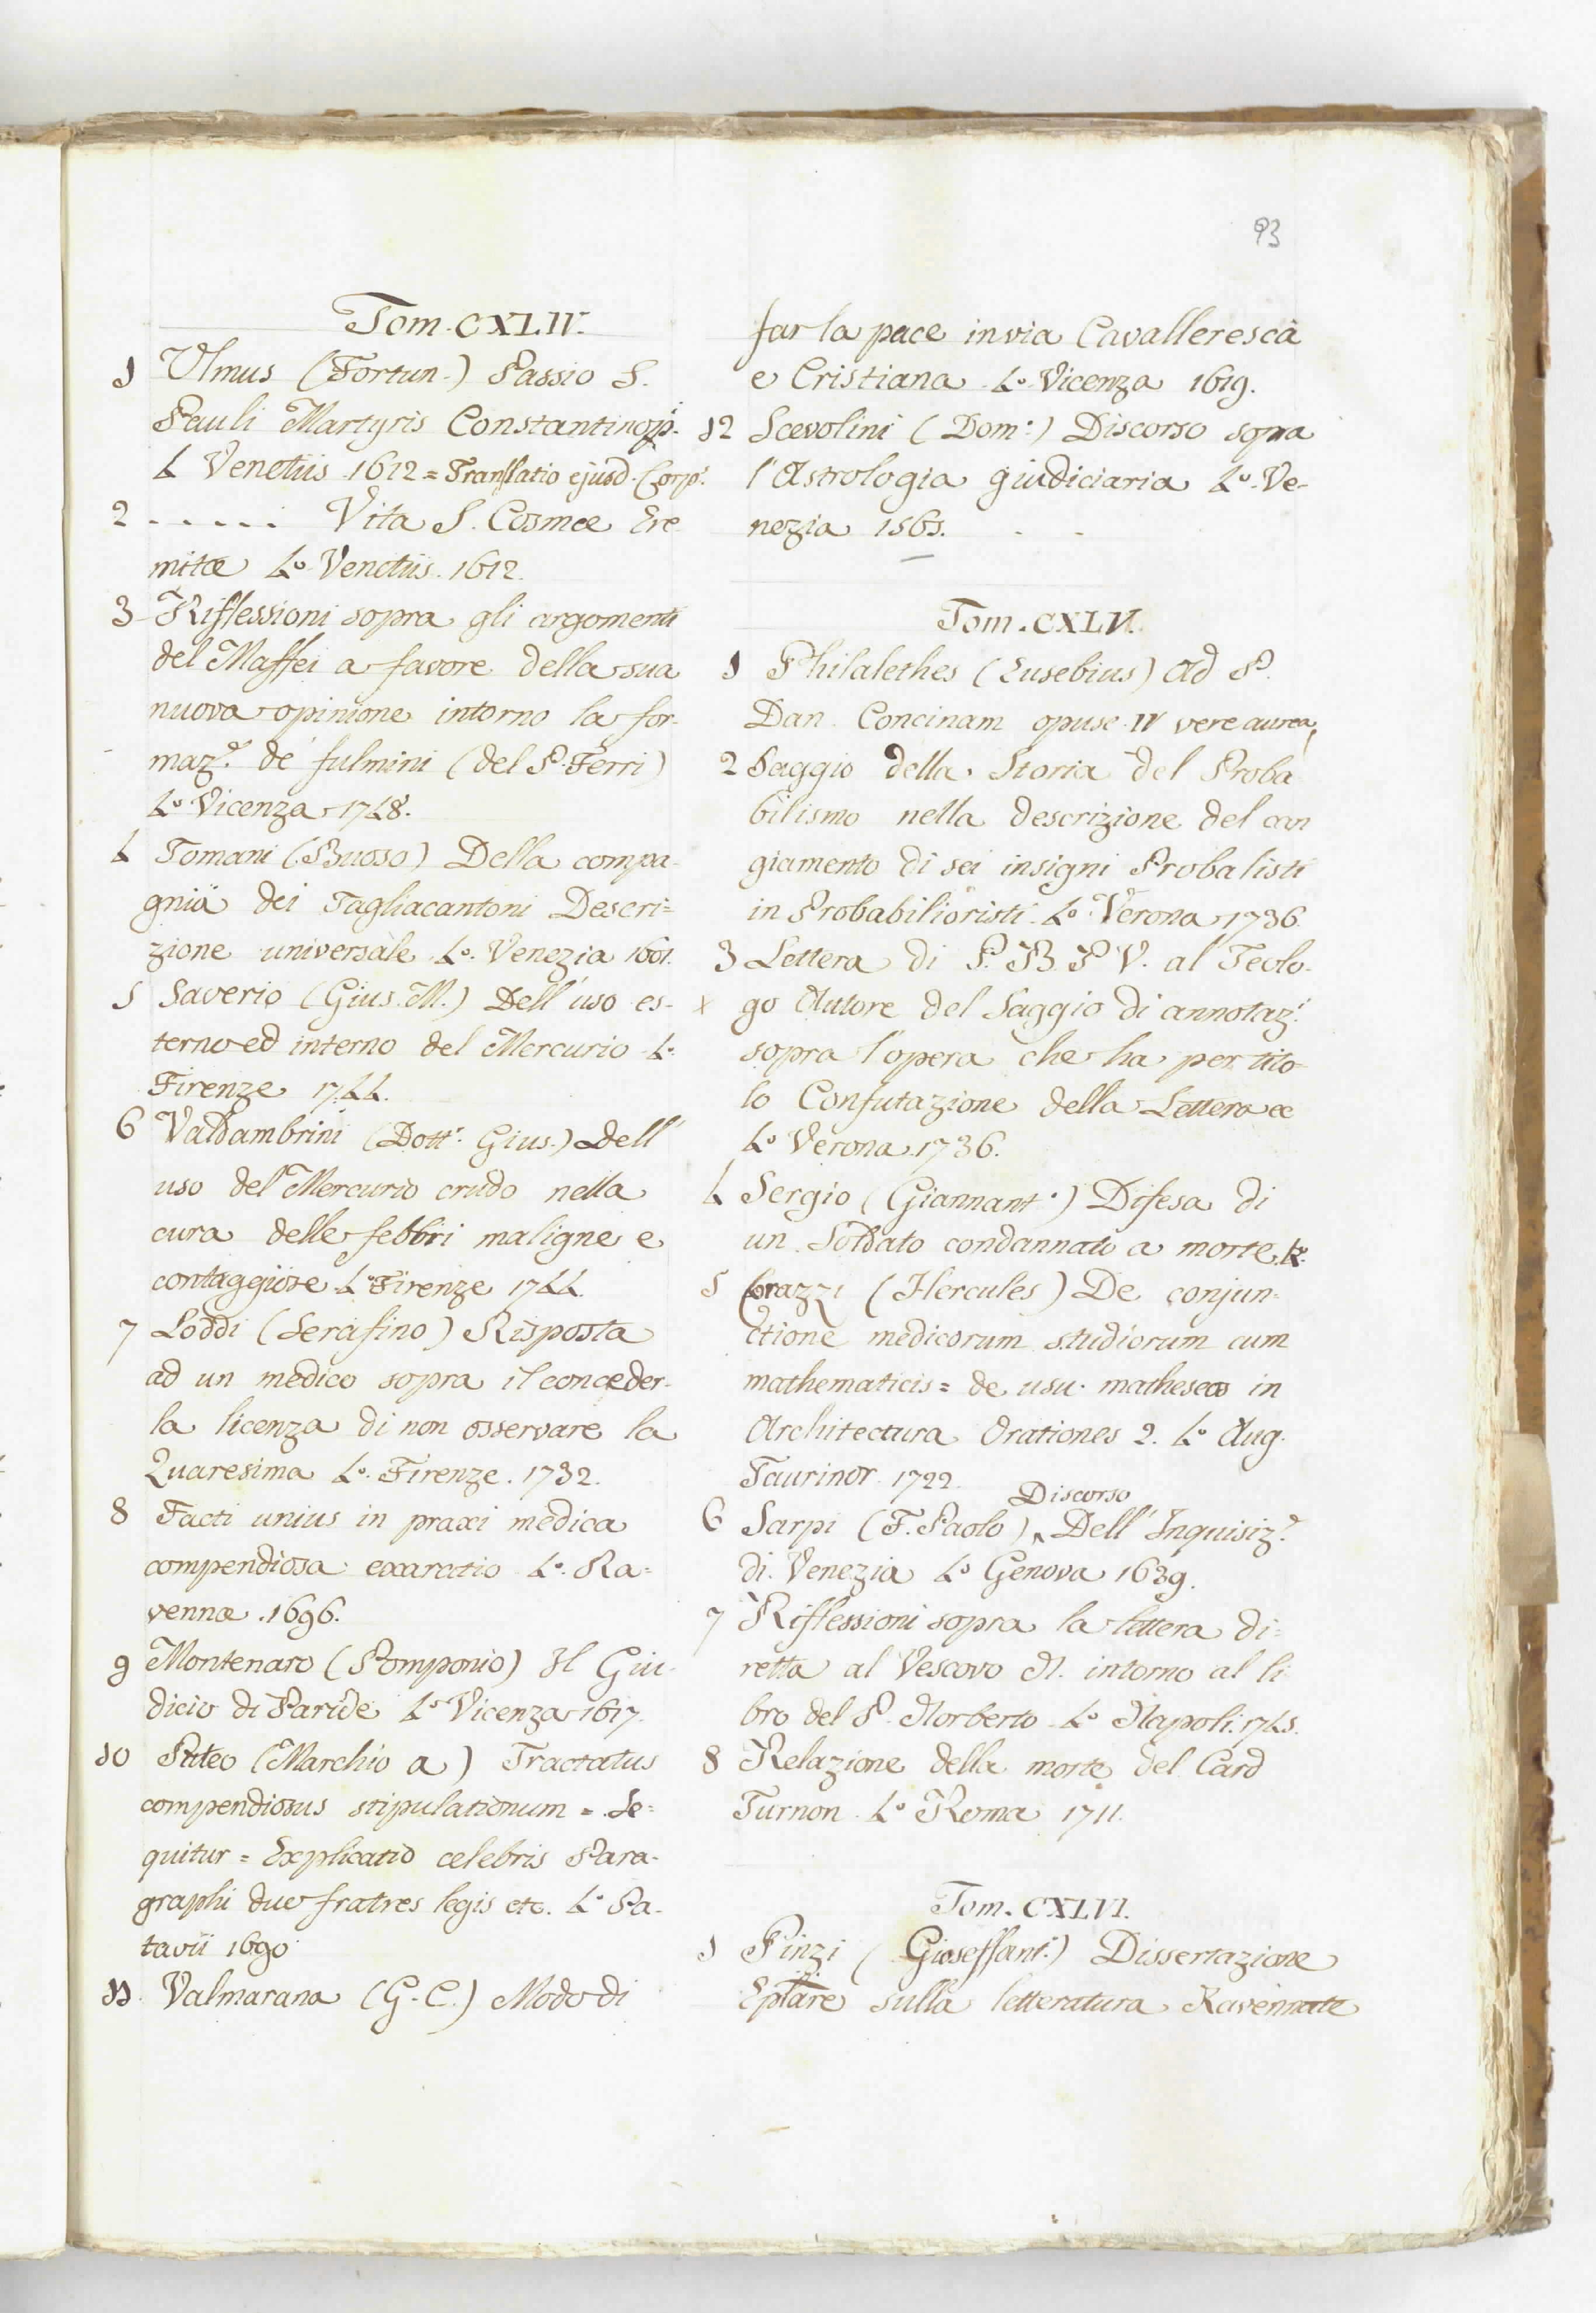 93
Tom. CXLIV.
1 Ulmus (Fortun.) Passio S.
Pauli Martyris Constantinopi.
4 Venetiis 1612 = Translatio ejusd. Corp.
2 - - - - - Vita S. Cosmæ Ere
mitæ 4.o Venetiis. 1612.
3 Riflessioni sopra gli argomenti
del Maffei a favore della sua
nuova opinione intorno la for-
maz.e de' fulmini (del P. Ferri)
4.o Vicenza 1748.
4 Tomani (Buoso) Della compa-
gnia dei Tagliacantoni Descri=
zione universale 4.o Venezia 1601.
5 Saverio (Gius. M.) Dell' uso es-
terno ed interno del Mercurio 4.o
Firenze 1744.
6 Valdambrini (Dott.r Gius.) Dell'
uso del Mercurio crudo nella
cura delle febbri maligne e
contaggiose 4.o Firenze 1744.
7 Loddi (Serafino) Risposta
ad un medico sopra il conceder-
la licenza di non osservare la
Quaresima 4.o Firenze. 1732.
8 Facti unius in praxi medica
compendiosa exarctio 4.o Ra=
vennæ. 1696.
9 Montenaro (Pomponio) Il Giu-
dicio di Paride 4.o Vicenza 1617.
10 Puteo (Marchio a) Tractatus
compendiosus stipulationum = Se=
quitur = Explicatio celebris Para-
graphi duo fratres legis etc. 4.o Pa-
tavii 1690
11 Valmarana (G. C.) Modo di
far la pace in via Cavalleresca
e Cristiana 4.o Vicenza 1619.
12 Scevolini (Dom.o) Discorso sopra
l'Astrologia giudiciaria 4.o Ve-
nezia 1565.
Tom. CXLV.
1 Philalethes (Eusebius) Ad P.
Dan. Concinam opusc. IV vere aurea
2 Saggio della Storia del Proba
bilismo nella descrizione del can
giamento di sei insigni Probalisti
in Probabilioristi. 4.o Verona 1736.
3 Lettera di P. B. P. V. al Teolo-
x go Autore del Saggio di annotaz.i
sopra l'opera che ha per tito-
lo Confutazione della Lettera &
4.o Verona 1736.
4 Sergio (Giannant.o) Difesa di
un Soldato condannato a morte 4.o
5 Corazzi (Hercules) De conjun=
ctione medicorum studiorum cum
mathematicis = de usu matheseos in
Architectura Orationes 2. 4.o Aug.
Taurinor. 1722.
Discorso
6 Sarpi (F. Paolo) ^ Dell' Inquisiz.e
di Venezia 4.o Genova 1639.
7 Riflessioni sopra la lettera di=
retta al Vescovo N. intorno al li
bro del P. Norberto 4.o Napoli. 1745.
8 Relazione della morte del Card
Turnon 4.o Roma 1711.
Tom. CXLVI.
1 Pinzi (Gioseffant.o) Dissertazione
Eplare sulla letteratura Ravennate